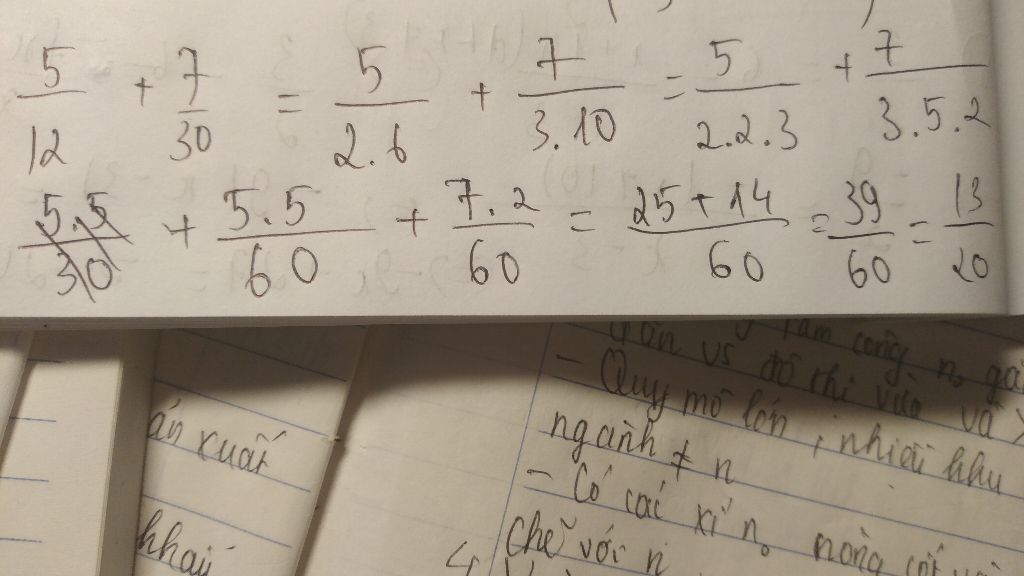 5/12 + 7/30 = 5/2.6 + 7/3.10 = 5/2.2.3 + 7/3.5.2
5.5/30 + 5.5/60 + 7.2/60 = 25 + 14/60 = 39/60 = 13/20
vs đô thị vào và
- Quy mô lớn, nhiều khu
ngành ≠ n
- Có cái xí n.
chẽ với n
xuất